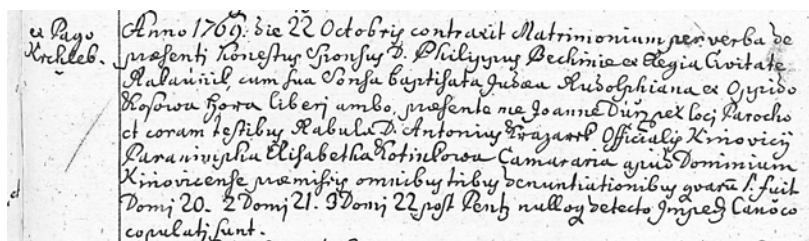 ex Pago
Krchleb.
Anno 1769. die 22 Octobris contraxit Matrimonium per verba de
præsenti honestus Sponsus D. Philippus Bechinie ex Regia Civitate
cum sua Sponsa baptisata Judæa Rudolphiana ex Oppido
Kosowa hora liberi ambo, præsente me Joanne loci Parocho
et coram testibus Rabula D. Antonius Officialis Kinovicij
Paranimpha Elisabetha Kotinkowa Camararia apud Dominium
Kinovicense præmissis omnibus tribus denuntiationibus quarū 1. fuit
Domj 20. 2 Domj 21. 3 Domj 22 post Pent; nulloq detecto Imped; Canoco
copulatj sunt.